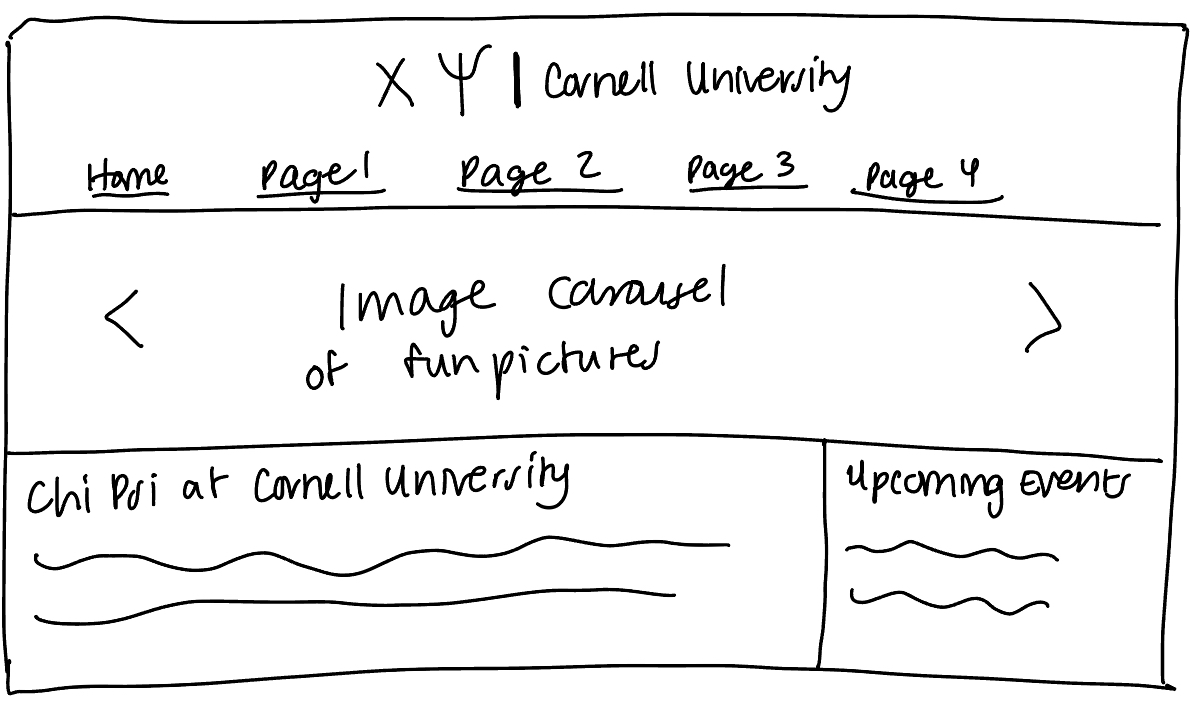 Χ Ψ | Cornell University
Home Page 1 Page 2 Page 3 Page 4
< Image carousel >
of fun pictures
Chi Psi at Cornell University
Upcoming Events